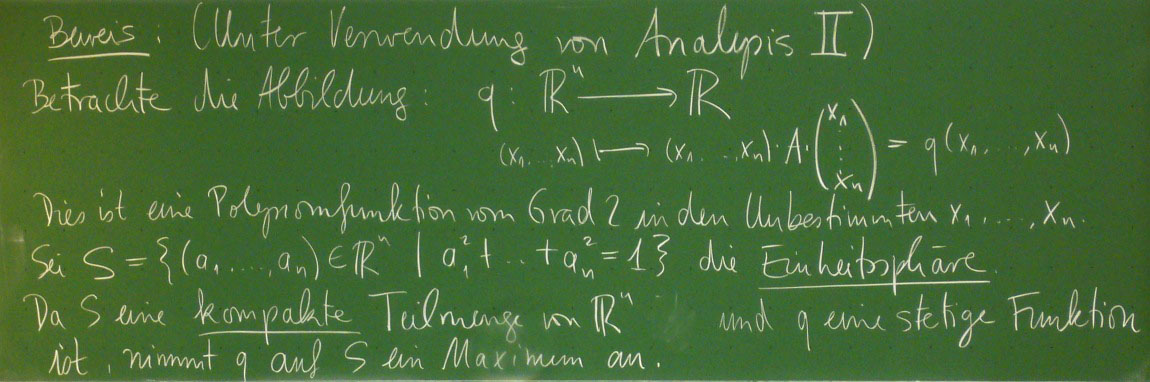 Beweis: (Unter Verwendung von Analysis II)
Betrachte die Abbildung: q: ℝⁿ ⟶ ℝ
(x₁...xₙ) ⟼ (x₁...,xₙ)·A·(x₁ ⋮ xₙ) = q(x₁,...,xₙ)
Dies ist eine Polynomfunktion vom Grad 2 in den Unbestimmten x₁,...,xₙ.
Sei S = {(a₁,...,aₙ) ∈ ℝⁿ | a₁² + .. + aₙ² = 1} die Einheitssphäre.
Da S eine kompakte Teilmenge von ℝⁿ und q eine stetige Funktion
ist, nimmt q auf S ein Maximum an.